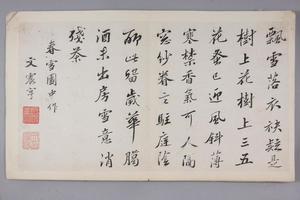 飄雪落衣袂疑是
樹上花樹上三五
花蚤已迎風斜薄
寒禁香氣可人隔
窓紗眷言駐庭陰
酌此留歲華臈
酒未出房雪意消
殘茶
春雪園中作
文震亨